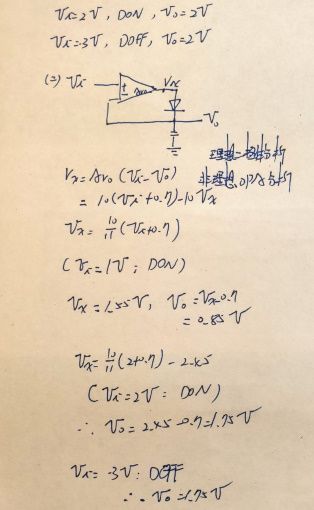 Vi=2V, DON, Vo=2V
Vi=-3V, DOFF, Vo=2V
(=) Vi
Vx
Avo
Vo
Vx = Avo (Vi-Vo)
非理想OPA分析
= 10(Vi+0.7)-10Vx
Vx = 10/11 (Vi+0.7)
(Vi=1V: DON)
Vx=1.55V, Vo=Vx-0.7
=0.85V
Vx=10/11(2+0.7)=2.45
(Vi=2V: DON)
∴ Vo=2.45-0.7=1.75V
Vi=-3V: DOFF
∴ Vo=1.75V